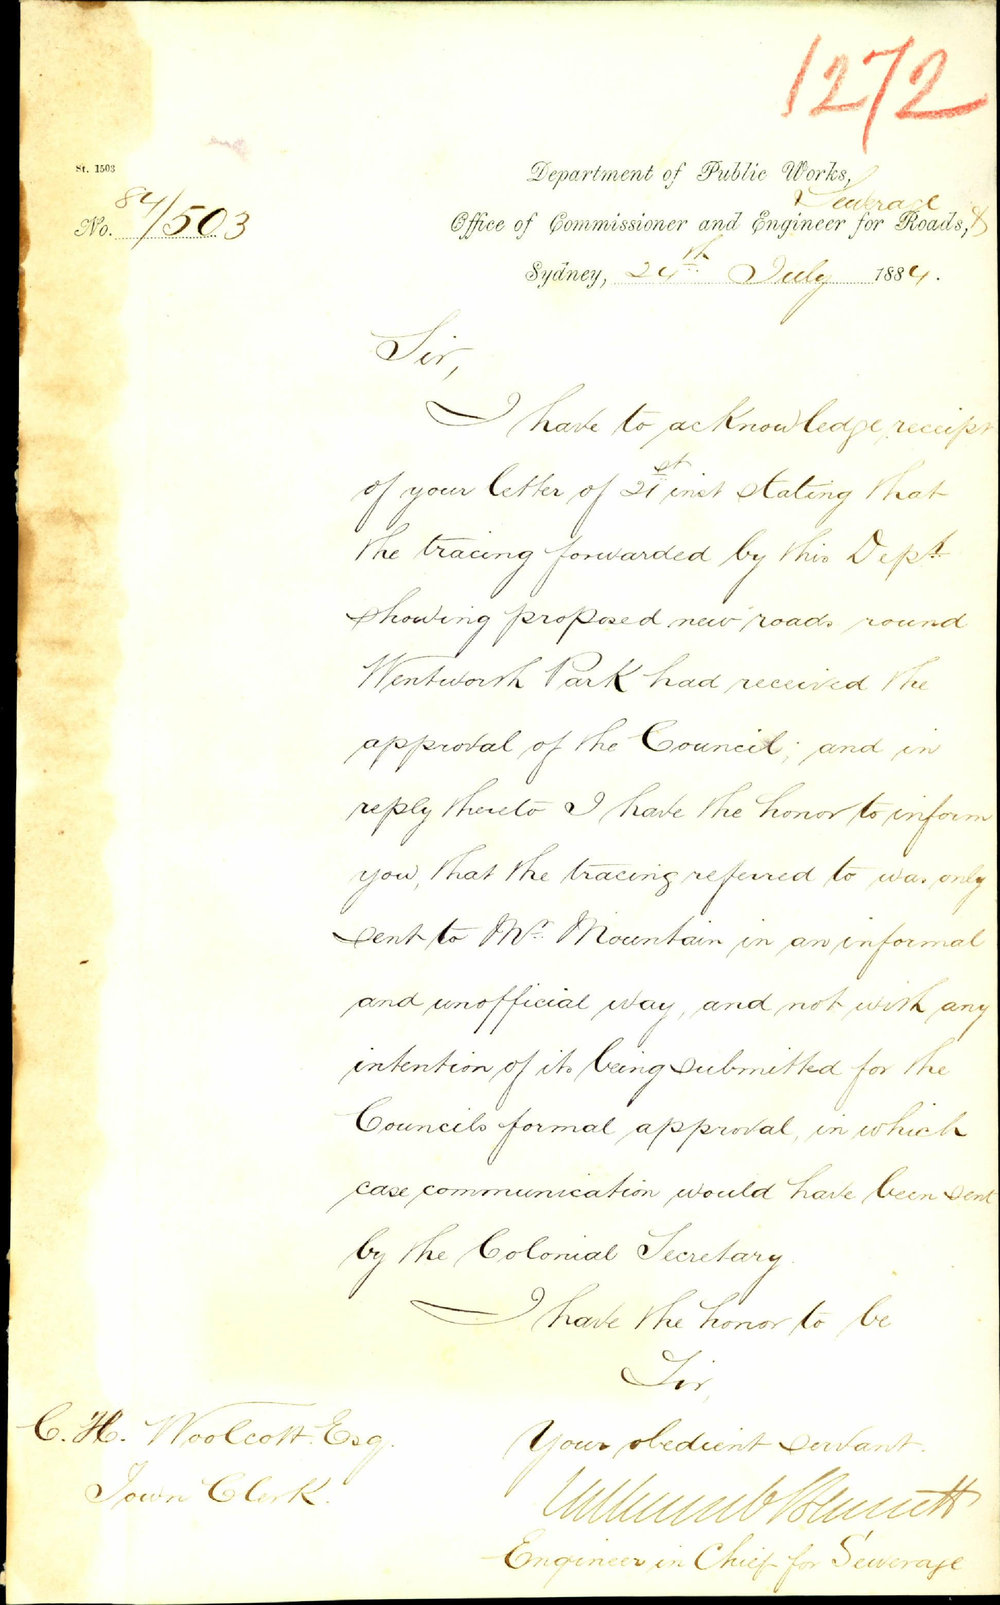 1272
St. 1503
Department of Public Works,
No. 84/503
Sewerage
Office of Commissioner and Engineer for Roads, &
Sydney, 24th July 1884.
Sir,
I have to acknowledge receipt
of your letter of 21st inst stating that
the tracing forwarded by this Dept
showing proposed new roads round
Wentworth Park had received the
approval of the Council; and in
reply thereto I have the honor to inform
you, that the tracing referred to was only
sent to Mr. Mountain in an informal
and unofficial way, and not with any
intention of its being submitted for the
Councils formal approval, in which
case communication would have been sent
by the Colonial Secretary.
I have the honor to be
Sir,
C. H. Woolcott. Esq.
Your obedient servant.
Town Clerk.
Bennett
Engineer in Chief for Sewerage